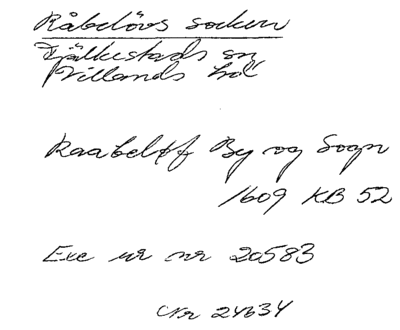 Råbelövs socken
Fjälkestads sn
Villands hd
Raabeløf By og Sogn
1609 KB 52
Exc ur nr 20583
Nr 24634